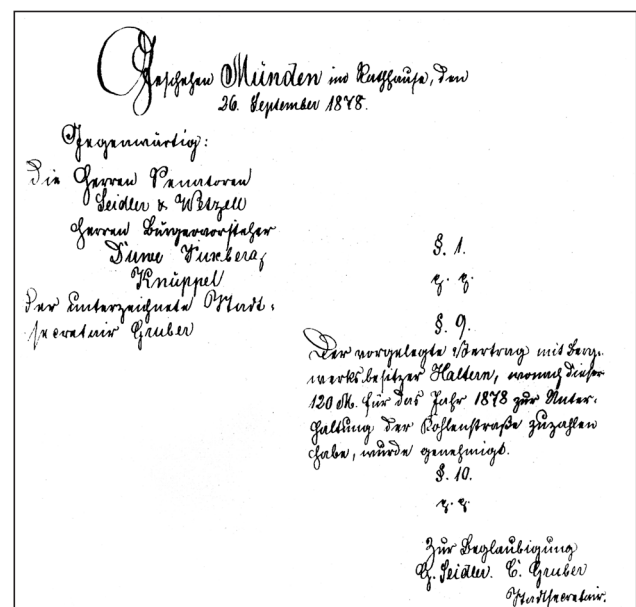 Geschehen Münden im Rathhause, den
26. September 1878.
Gegenwärtig:
Die Herren Senatoren
Seidler & Wetzell
Herren Bürgervorsteher
Knüppel
Der unterzeichnete Stadt-
secretair Gruber
§. 1.
p. p.
§. 9.
Der vorgelegte Vertrag mit Berg-
werksbesitzer Haltern, wonach dieser
120 M. für das Jahr 1878 zur Unter-
haltung der Kohlenstraße zuzahlen
habe, wurde genehmigt.
§. 10.
p. p.
Zur Beglaubigung
G. Seidler. C. Gruber
Stadtsecretair.